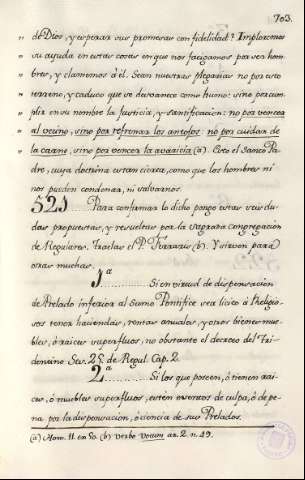 703.
de Dios, y esperar sus promesas con fidelidad? Imploremos
su ayuda en estas cosas en que nos fatigamos por ser hom
bres, y clamemos à él. Sean nuestras plegarias no por esto
terreno, y caduco que se desvanece como humo: sino por cum
plir en su nombre la Justicia, y santificacion: no por vencer
al vecino, sino por refrenar los antojos: no por cuidar de
la carne, sino por vencer la avaricia (a). Este el Santo Pa
dre, cuya doctrina es tan cierta, como que los hombres ni
nos pueden condenar, ni salvarnos.
521 Para confirmar lo dicho pongo estas seis du
das propuestas, y resueltas por la sagrada congregacion
de Regulares. Traelas el P. Ferraris (b). Y sirven para
otras muchas.
1ª
Si en virtud de dispensacion
de Prelado inferior al Sumo Pontifice sea licito à Religio
sos tener haciendas, rentas anuales, y otros bienes mue
bles, ò raices superfluos, no obstante el decreto del Tri
dentino Ses. 25 de Regul. Cap. 2
2ª
Si los que poseen, ò tienen rai
ces, ò muebles superfluos, esten exentos de culpa, ò de pe
na por la dispensacion, ò licencia de sus Prelados.
(a) Hom. 11. en (b) Verbo Votum ar. 2. n. 29.